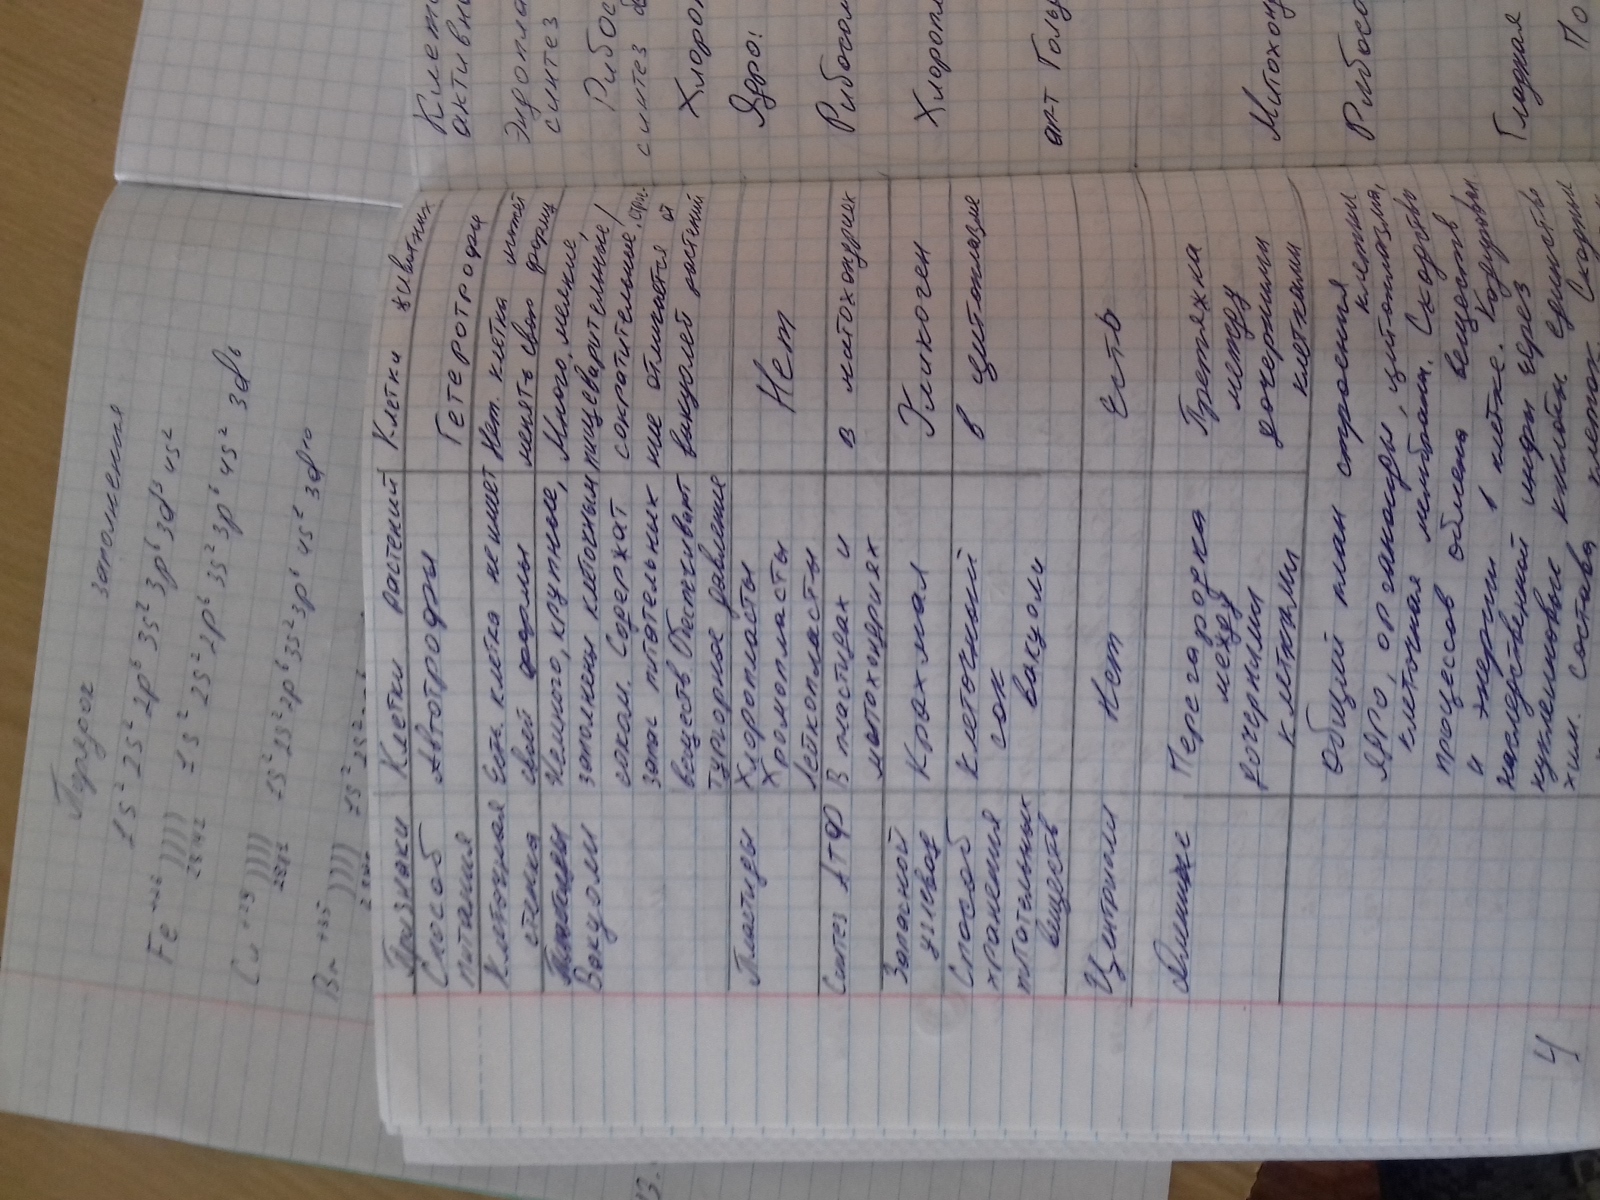 Порядок заполнения
1S² 2S² 2p⁶ 3S² 3p⁶ 3d³ 4S²
Fe +26 ))))
1S² 2S² 2p⁶ 3S² 3p⁶ 4S² 3d⁶
Cu +29 ))))
1S² 2S² 2p⁶ 3S² 3p⁶ 4S² 3d¹⁰
+35 ))))
1S² 2S²
Признаки
Клетки растений
Клетки животных
Способ
питания
Автотрофы
Гетеротрофы
Клеточная
стенка
Есть. клетка не имеет
своей формы
Нет. клетка может
менять свою форму
Вакуоли
Немного, крупные,
заполнены клеточным
соком. Содержат
запас питательных
веществ Обеспечивают
тургорное давление
Много, мелкие,
пищеварительные,
сократительные!
не отличается от
вакуолей растений
Пластиды
Хлоропласты
Хромопласты
Лейкопласты
Нет
Синтез АТФ
В пластидах и
митохондриях
в митохондриях
Запасной
углевод
Крахмал
Гликоген
Способ
хранения
питательных
веществ
Клеточный
сок
вакуоли
в цитоплазме
Центриоли
Нет
есть
Деление
Перегородка
между
дочерними
клетками
Перетяжка
между
дочерними
клетками
Общий план строения
клетки
ядро, органоиды, цитоплазма,
клеточная мембрана. Сходство
процессов обмена веществ
и энергии в клетке.
наследственной инфы через
нуклеиновые кислоты единство
хим. состава клеток. Сходны
4
активны
синтез
Рибос
синтез
Хлороп
Ядро:
Рибосом
Хлоропл
ап-т Гольд
Митохонд
Рибосо
Гладкая
По
13.